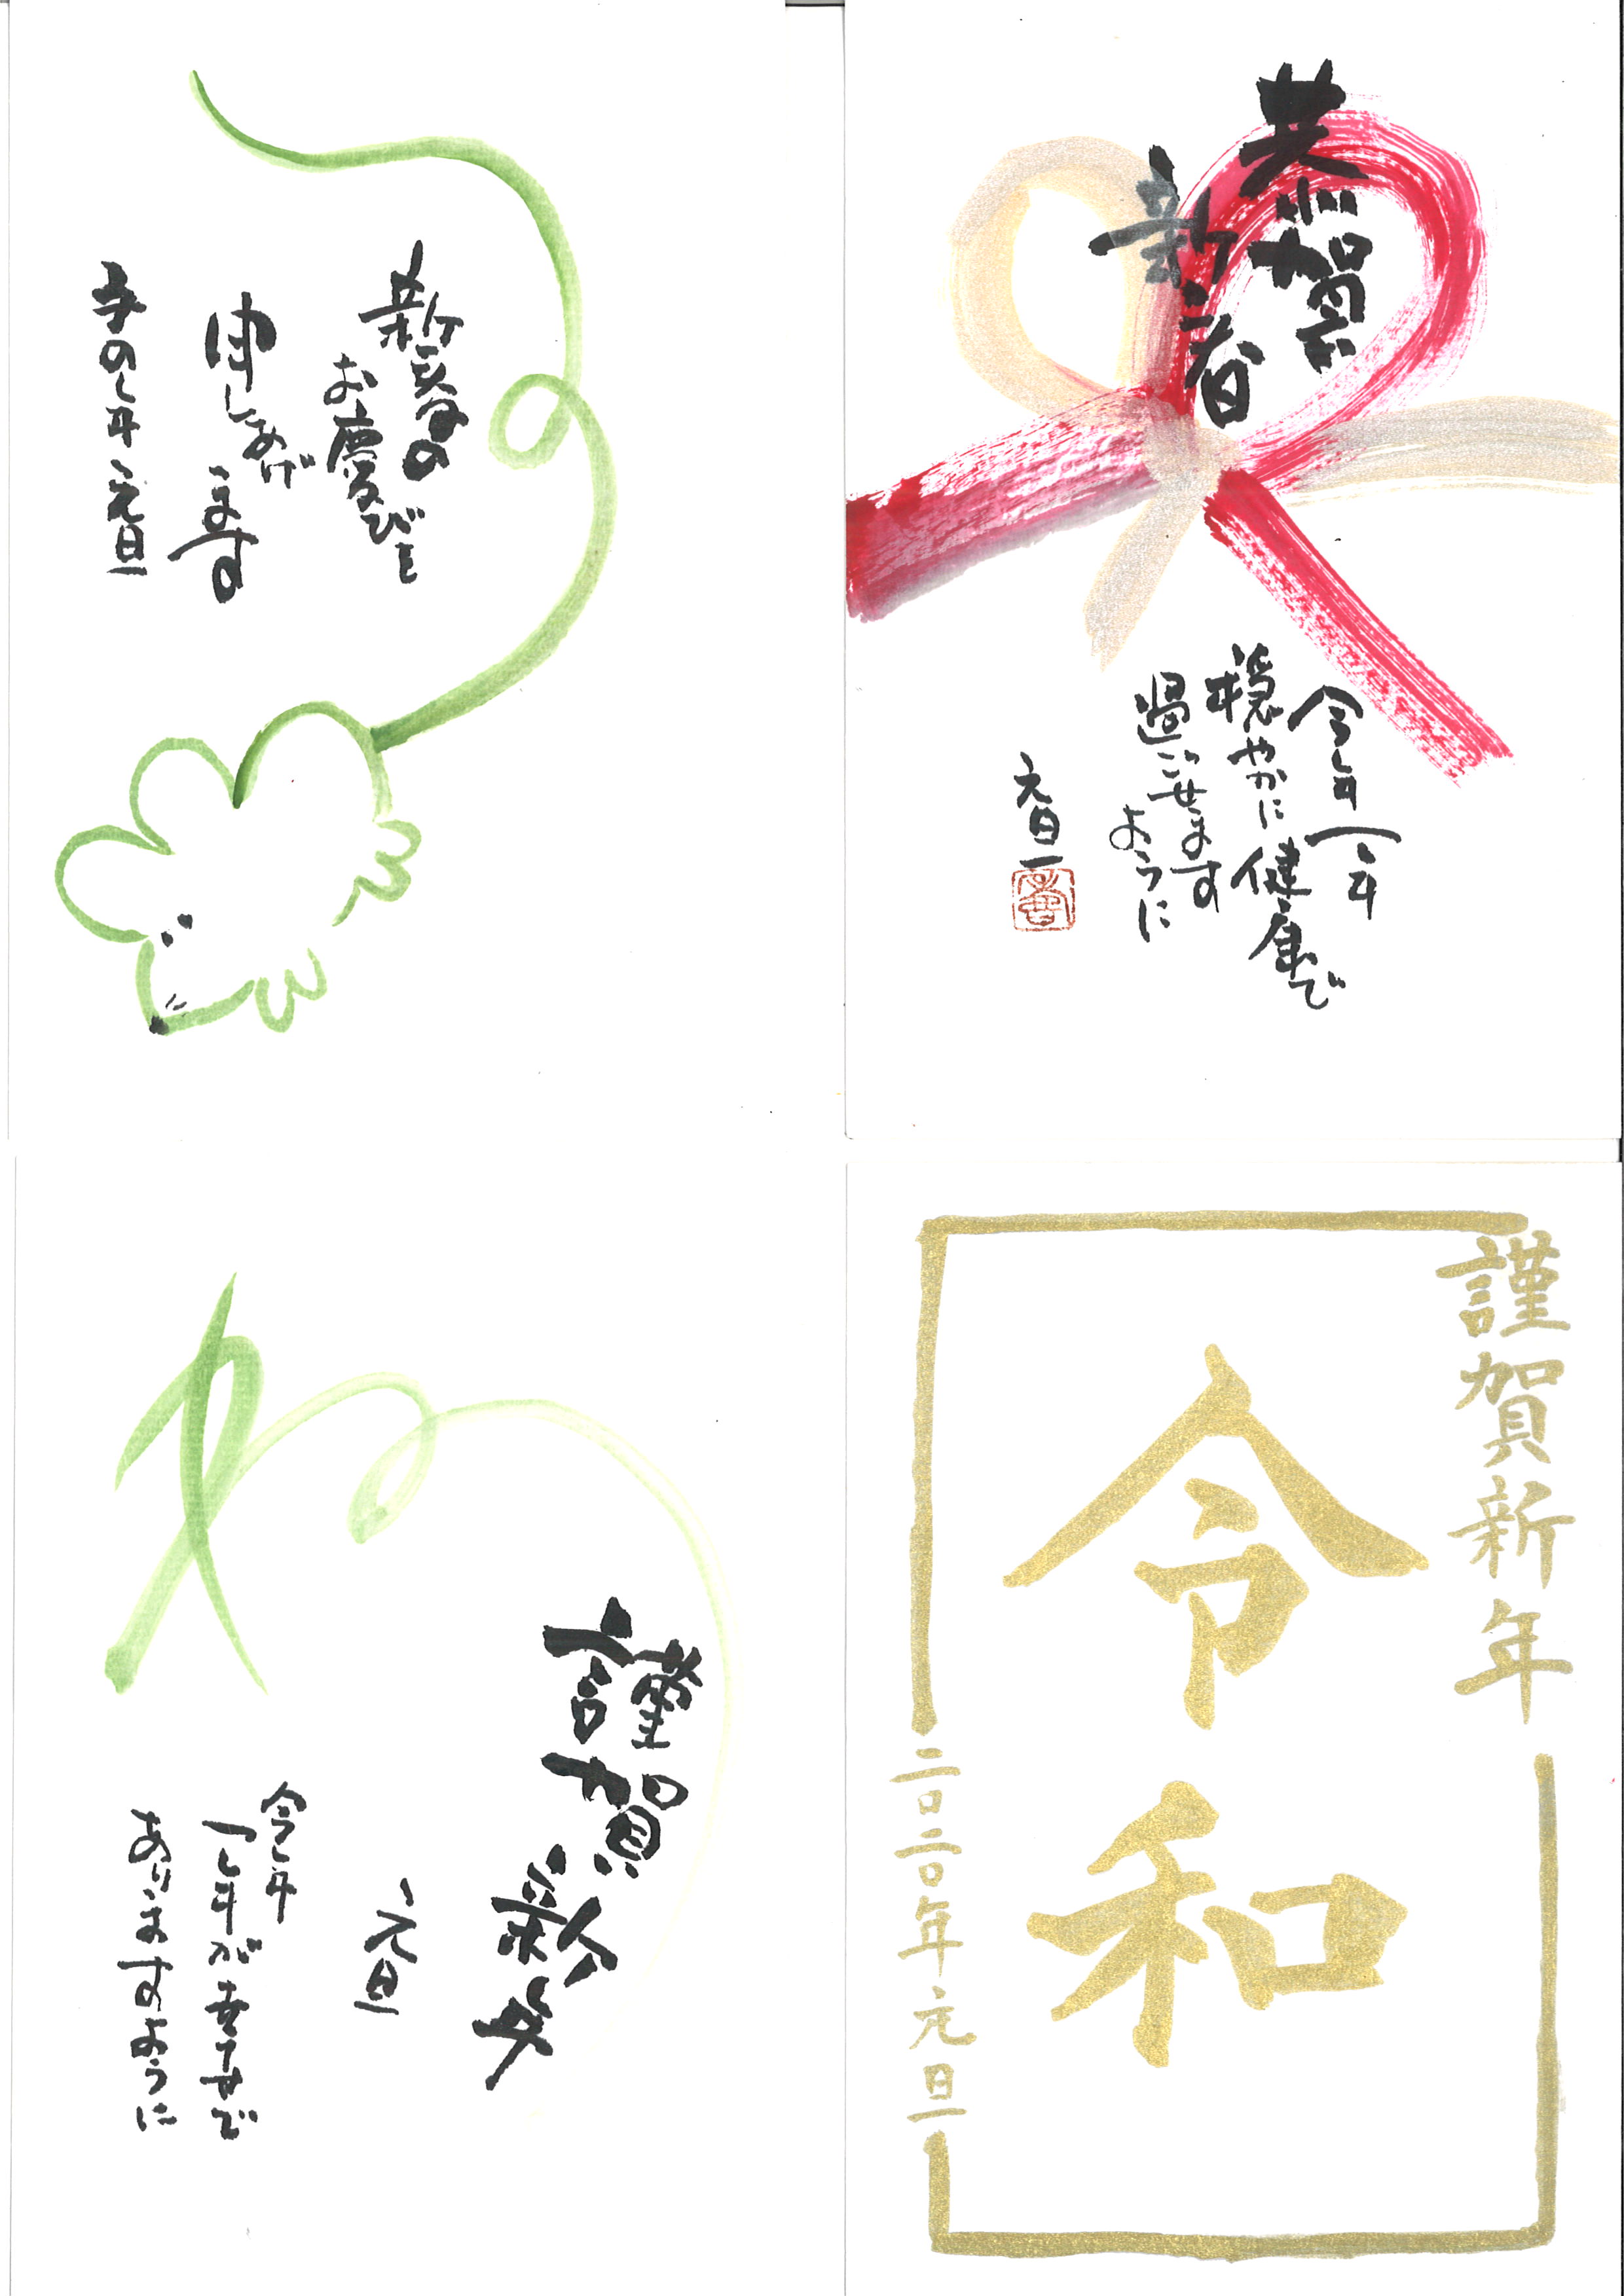 恭賀
新春
今年一年
穏やかに健康で
過ごせます
ように
元旦
新春の
お慶びを
申しあげ
ます
子の年元旦
謹賀新年
令和
二〇二〇年元旦
謹賀
新年
元旦
今年
一年が幸せで
ありますように